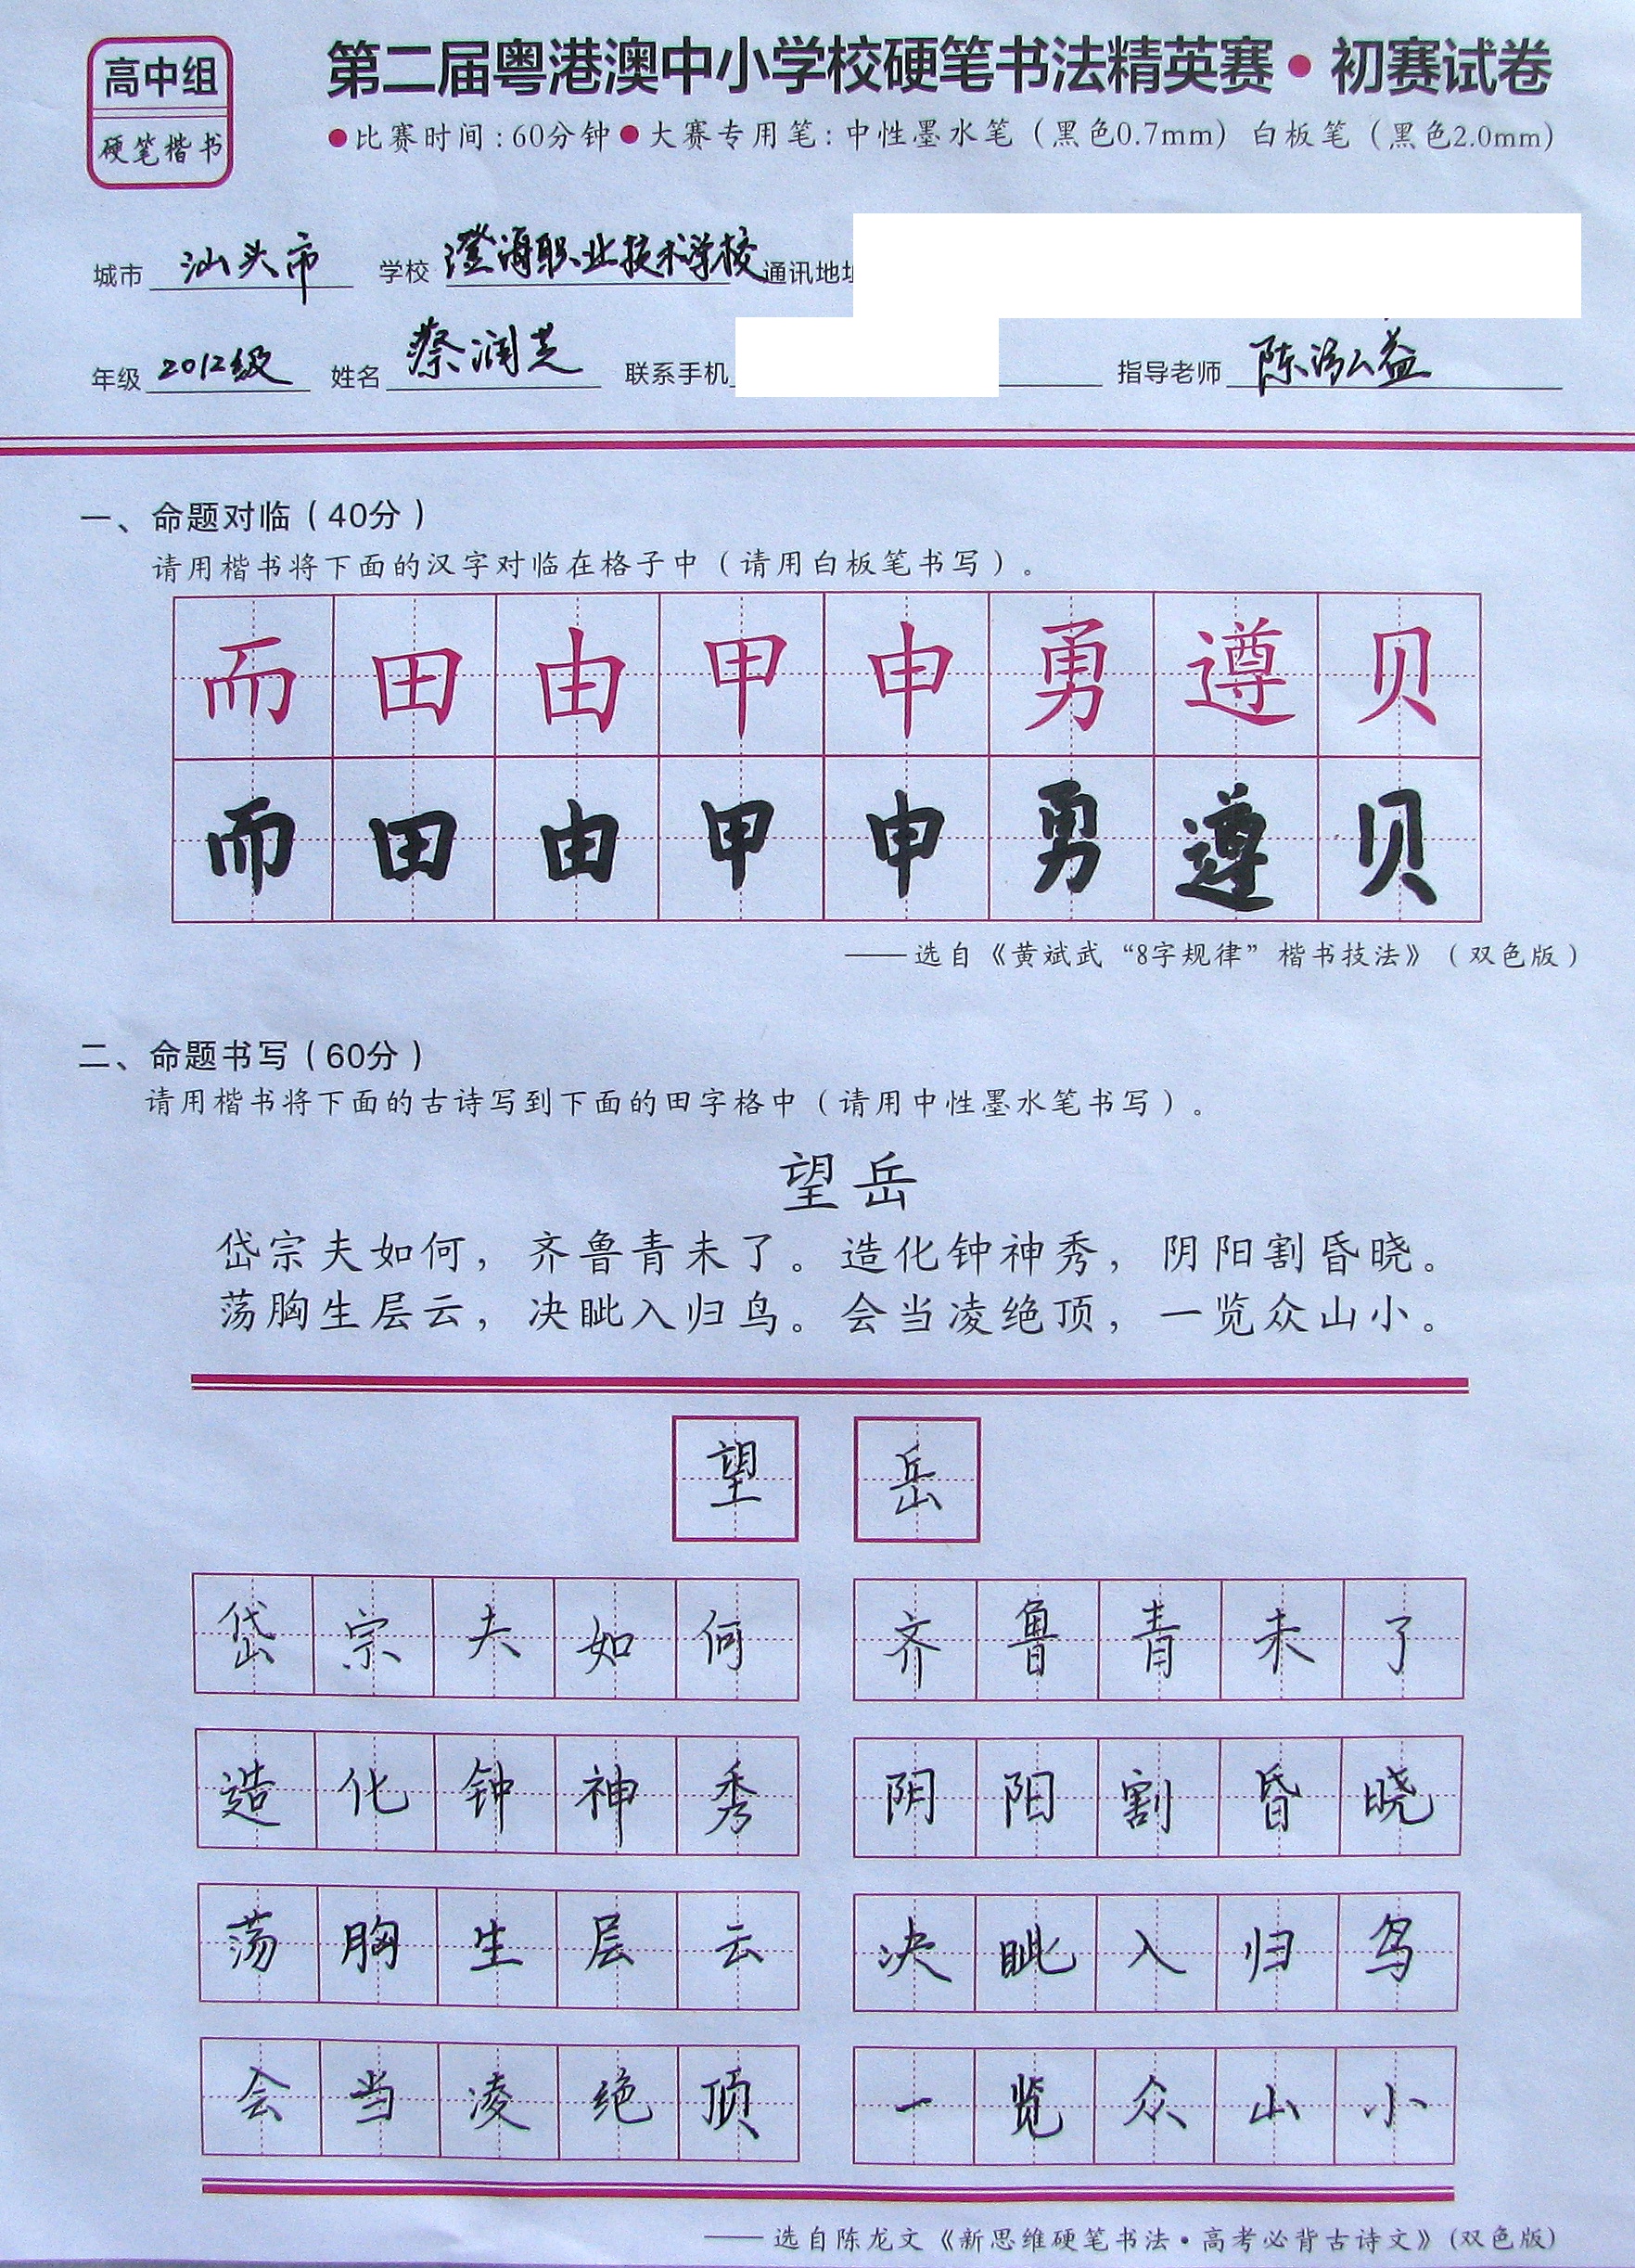 高中组
硬笔楷书
第二届粤港澳中小学校硬笔书法精英赛•初赛试卷
●比赛时间:60分钟●大赛专用笔:中性墨水笔（黑色0.7mm）白板笔（黑色2.0mm）
城市 汕头市 学校 澄海职业技术学校 通讯地址
年级 2012级 姓名 蔡润芝 联系手机 指导老师 陈泓益
一、命题对临（40分）
请用楷书将下面的汉字对临在格子中（请用白板笔书写）。
而田由甲申勇遵贝
而田由甲申勇遵贝
——选自《黄斌武“8字规律”楷书技法》（双色版）
二、命题书写（60分）
请用楷书将下面的古诗写到下面的田字格中（请用中性墨水笔书写）。
望岳
岱宗夫如何，齐鲁青未了。造化钟神秀，阴阳割昏晓。
荡胸生层云，决眦入归鸟。会当凌绝顶，一览众山小。
望岳
岱宗夫如何 齐鲁青未了
造化钟神秀 阴阳割昏晓
荡胸生层云 决眦入归鸟
会当凌绝顶 一览众山小
——选自陈龙文《新思维硬笔书法•高考必背古诗文》(双色版)